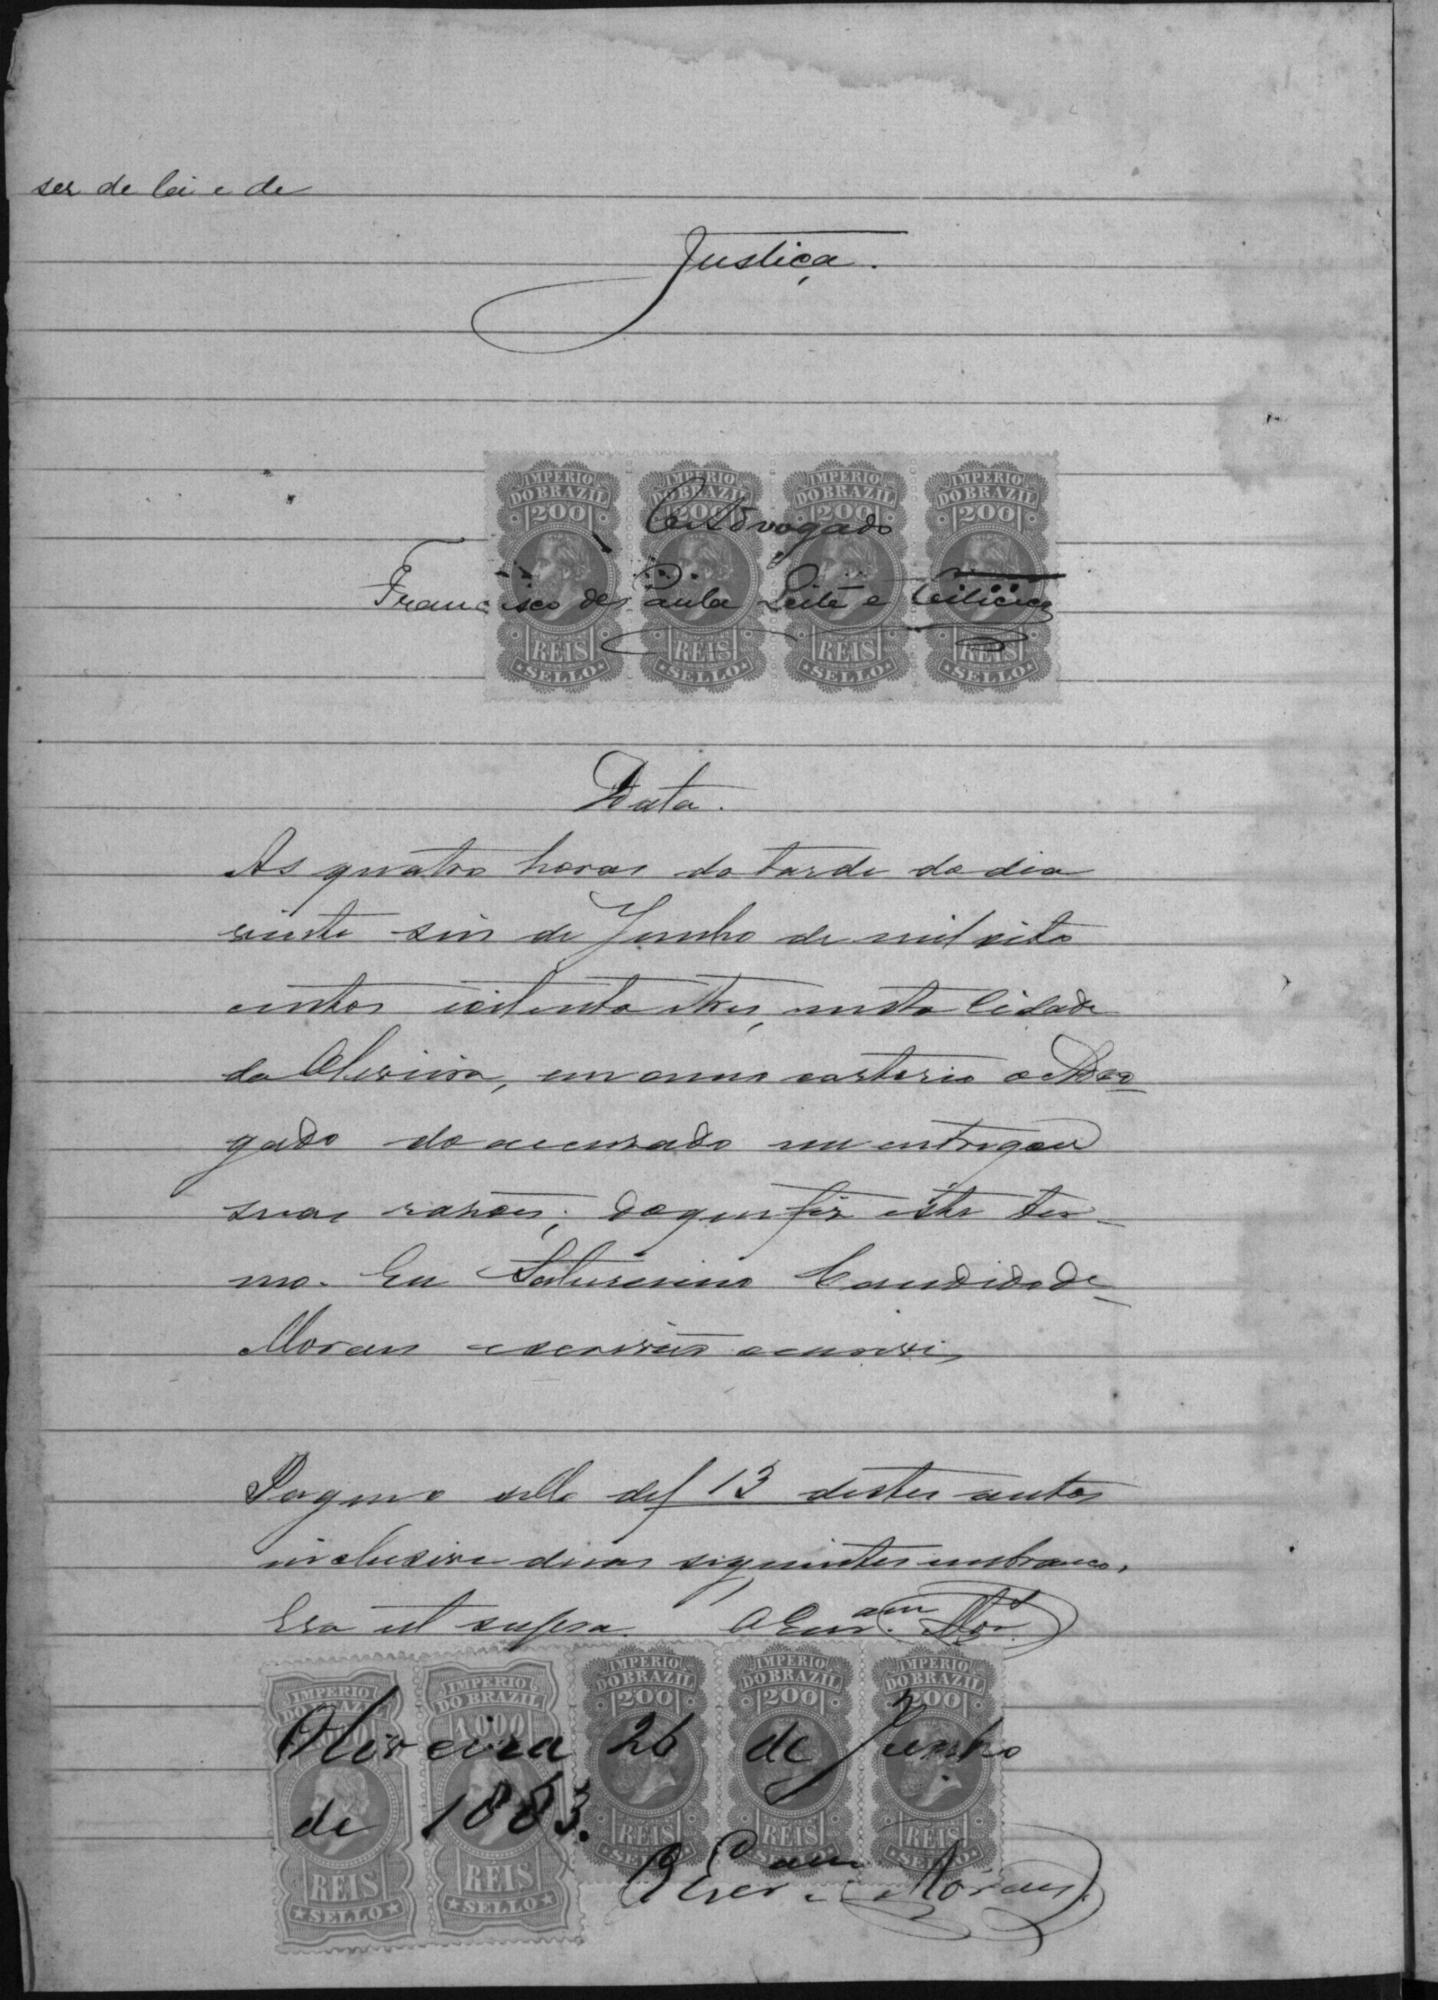 ser de lei e de
Justiça.
IMPERIO DO BRAZIL 200 REIS SELLO
IMPERIO DO BRAZIL 200 REIS SELLO
IMPERIO DO BRAZIL 200 REIS SELLO
IMPERIO DO BRAZIL 200 REIS SELLO
O Advogado
Francisco de Paula Leite e
Data.
As quatro horas da tarde do dia
vinte seis de Junho de mil oito
centos oitenta e tres, nesta Cidade
da Oliveira, em meu cartorio o Advo
gado do accusado me entregou
suas rasões; do que fiz este ter-
mo. Eu Saturnino Candido de
Moraes escrivão escrevi
Pagou sello de f 13 destes autos
inclusive duas seguintes em branco.
Era ut supra. O Escr.am Mor.
IMPERIO DO BRAZIL 1.000 REIS SELLO
IMPERIO DO BRAZIL 1.000 REIS SELLO
IMPERIO DO BRAZIL 200 REIS SELLO
IMPERIO DO BRAZIL 200 REIS SELLO
IMPERIO DO BRAZIL 200 REIS SELLO
Oliveira 26 de Junho
de 1883.
O Escr.am Moraes.